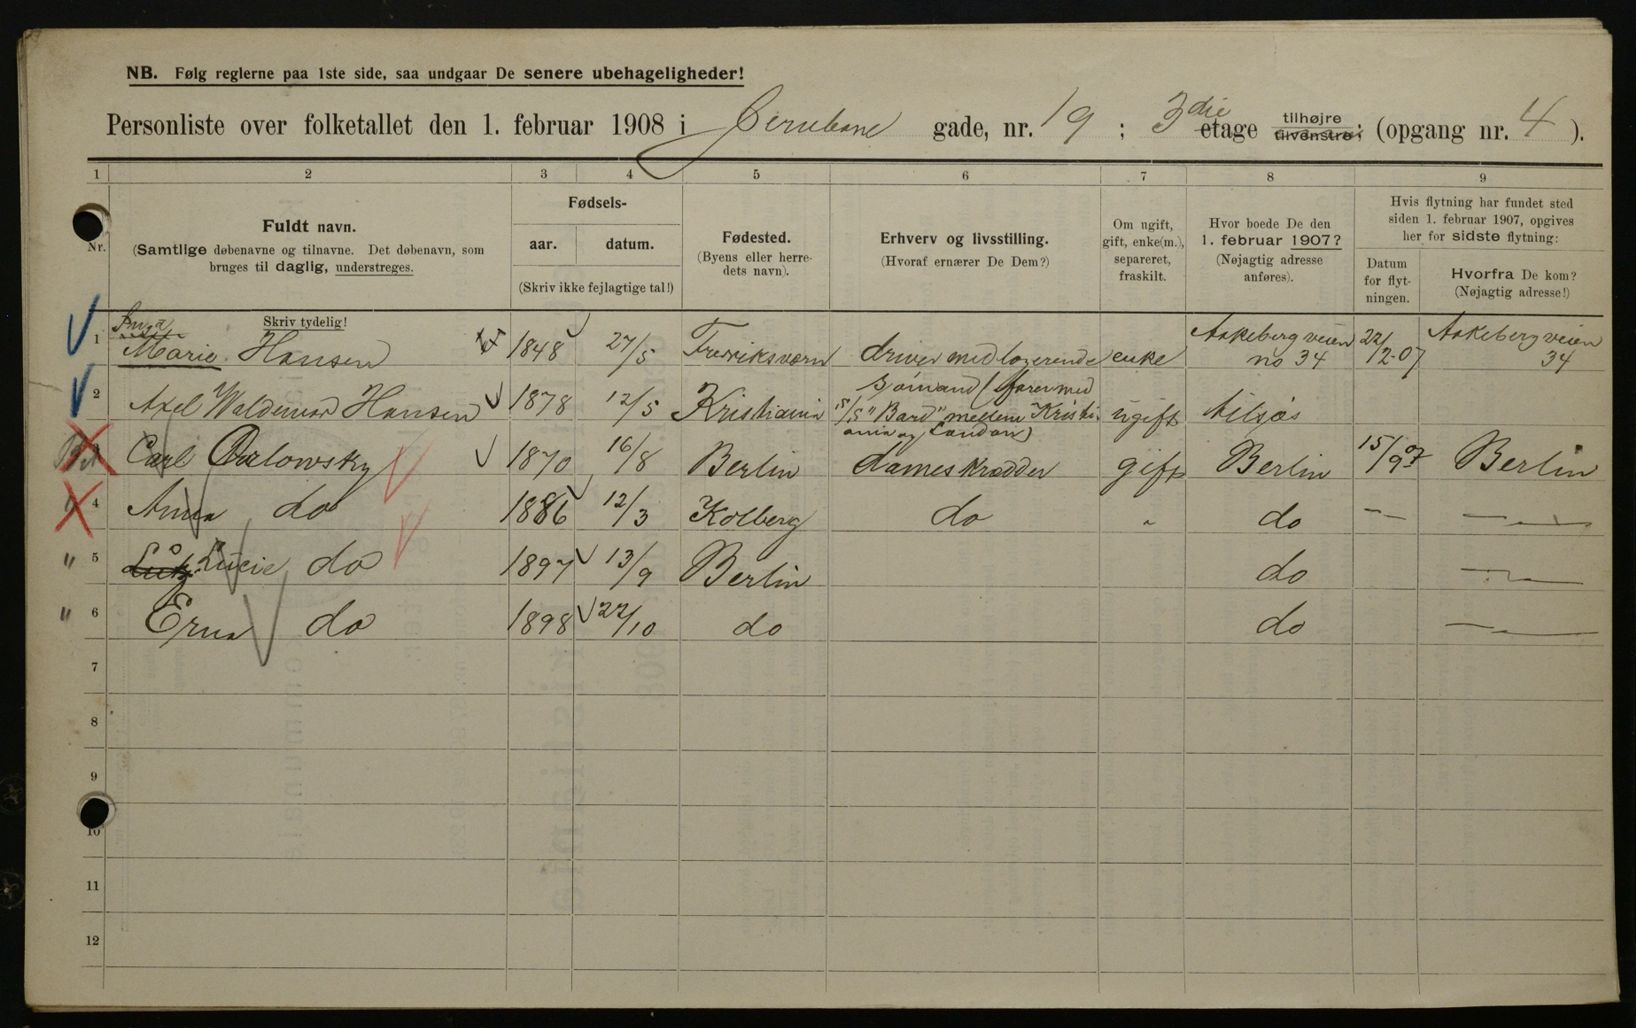 NB. Følg reglerne paa 1ste side, saa undgaar De senere ubehageligheder!
Personliste over folketallet den 1. februar 1908 i Jernbane gade, nr. 19 ; 3die etage tilhøjre tilvenstre; (opgang nr. 4 ).
1 2 3 4 5 6 7 8 9
Nr.
Fuldt navn.
(Samtlige døbenavne og tilnavne. Det døbenavn, som
bruges til daglig, understreges.
Skriv tydelig!
Fødsels-
aar. datum.
(Skriv ikke fejlagtige tal!)
Fødested.
(Byens eller herre-
dets navn).
Erhverv og livsstilling.
(Hvoraf ernærer De Dem?)
Om ugift,
gift, enke(m.),
separeret,
fraskilt.
Hvor boede De den
1. februar 1907?
(Nøjagtig adresse
anføres).
Hvis flytning har fundet sted
siden 1. februar 1907, opgives
her for sidste flytning:
Datum
for flyt-
ningen.
Hvorfra De kom?
(Nøjagtig adresse!)
1 Marie Hansen 1848 27/5 Fredriksværn driver med logerende enke Aakeberg veien no 34 22/12-07 Aakeberg veien 34
2 Axel Waldemar Hansen 1878 12/5 Kristiania Sömand (faren med "Bard" mellem Kristiania og London) ugift tilsjøs
3 Carl Orlowsky 1870 16/8 Berlin dameskrædder gift Berlin 15/9 07 Berlin
4 Anna do 1886 12/3 Kolberg do " do — —
5 Lucie do 1897 13/9 Berlin do —
6 Erna do 1898 22/10 do do —
7
8
9
10
11
12